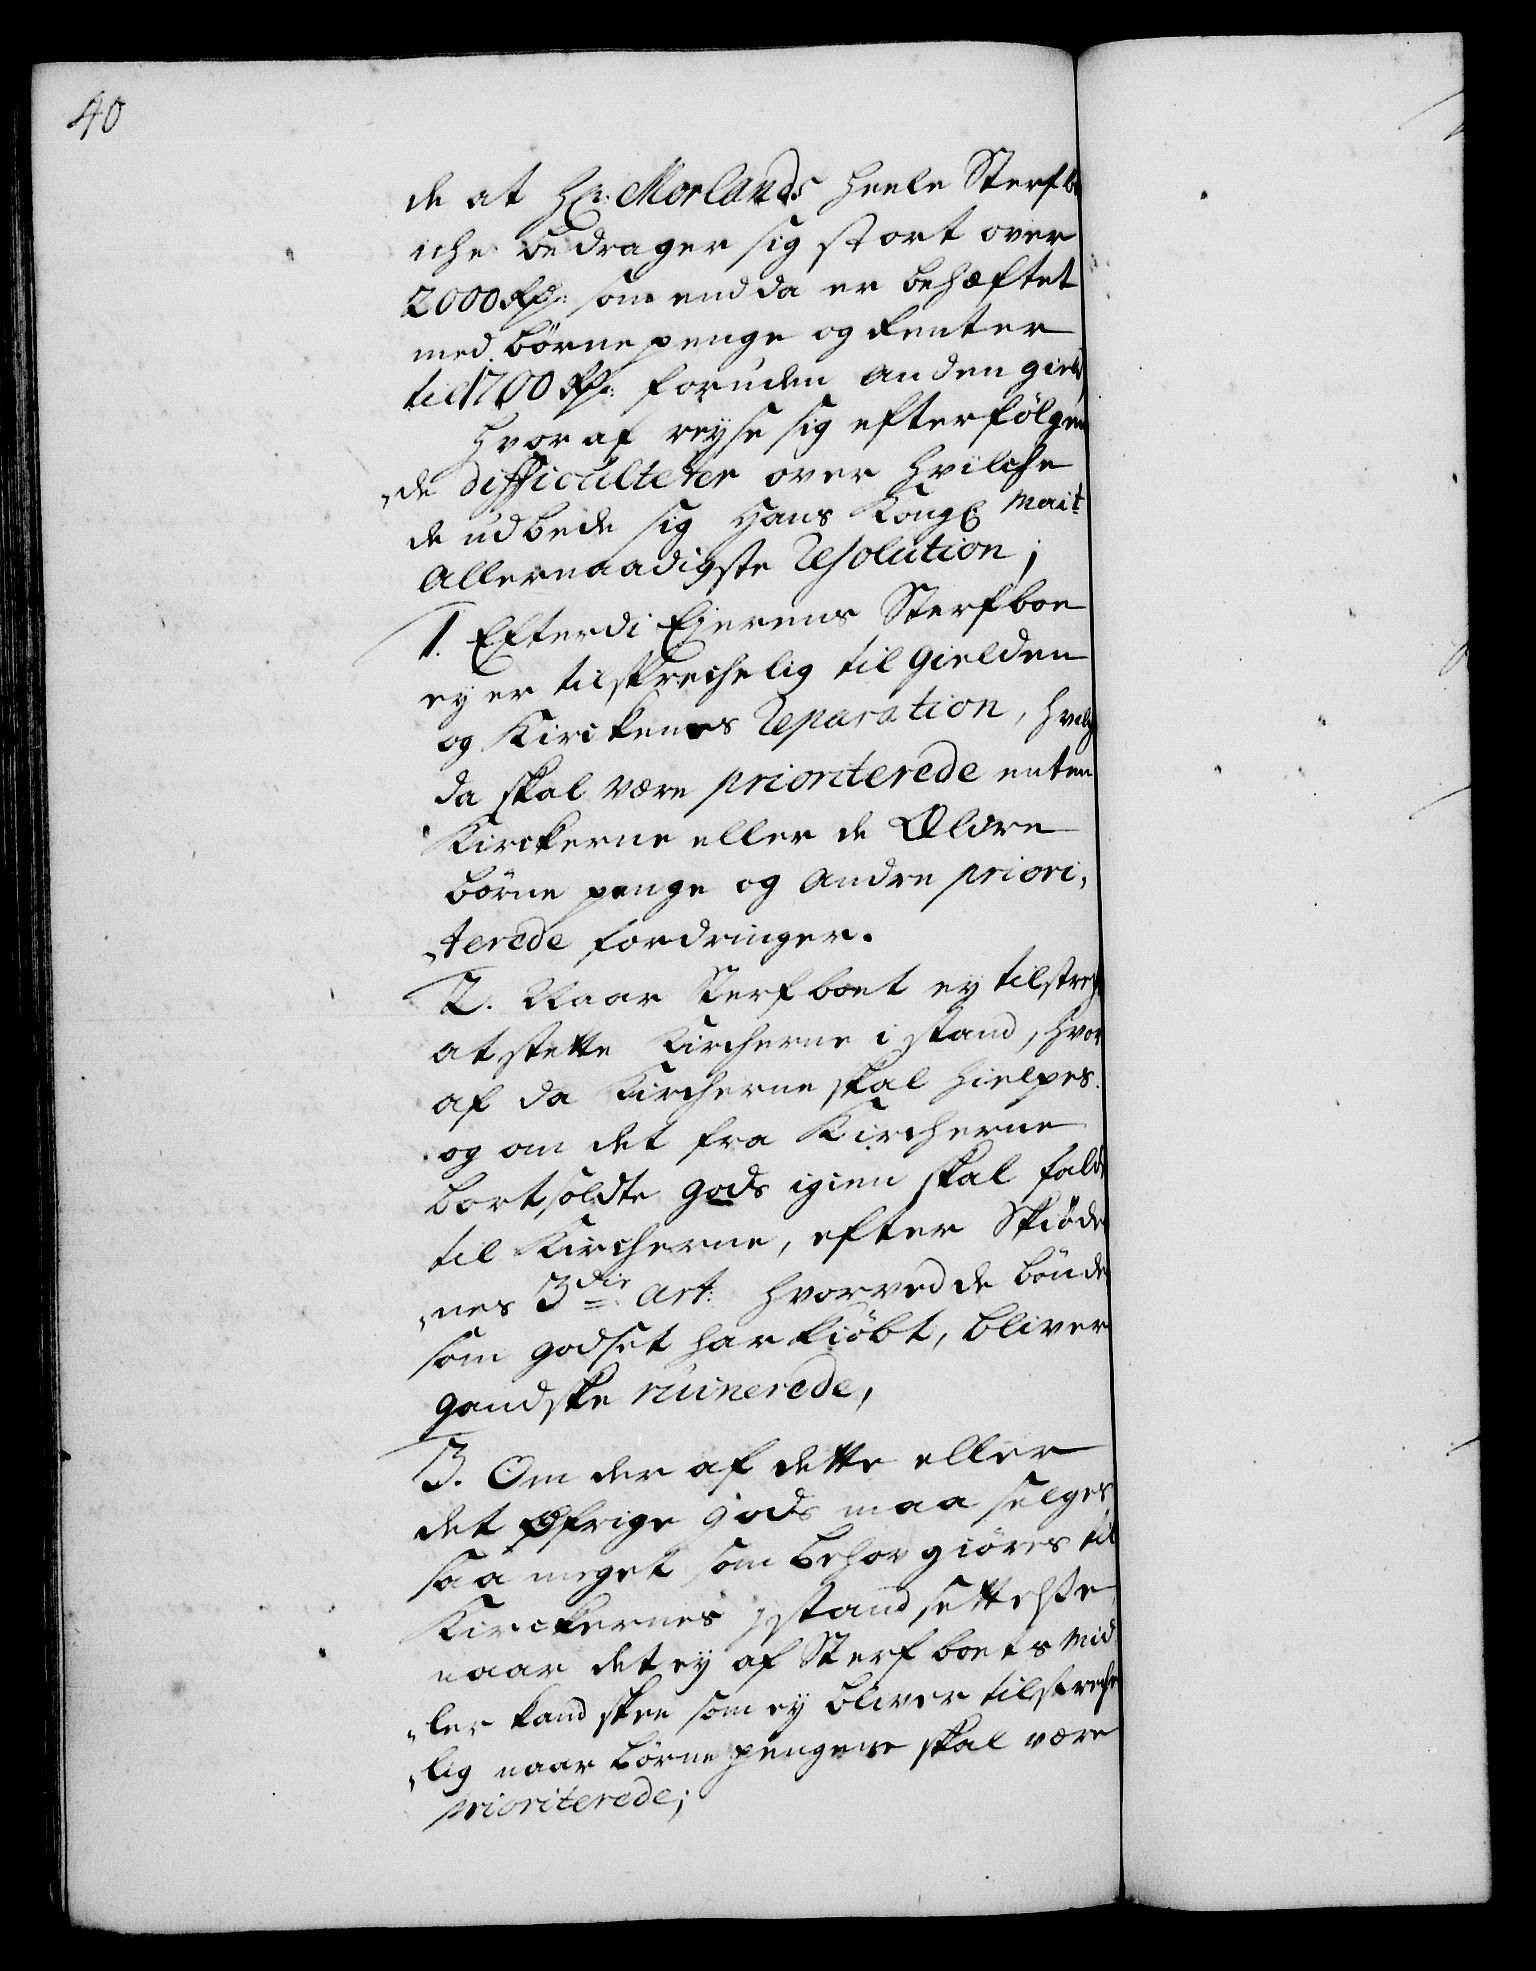 40
de at Hr: Morlands heele Sterfbo
iche bedrager sig stort over
2000 Rdr: som endda er behæftet
med börnepenge og Renter
til 1700 Rdr: foruden anden gield,
Hvoraf reyse sig efterfölgen
„de difficulteter over hvilche
de udbede sig Hans Kongl Mait:
Allernaadigste Resolution;
1. Efterdi Ejerens Sterfboe
ey er tilstrechelig til gielden
og Kirckenes Reparation, hvilc
da skal være prioriterede enten
Kirckerne eller de Ældre
börnepenge og andre priori,
„terede fordringer.
2. Naar Sterfboet ey tilstrech
at sette Kircherne i stand, hvor
af da Kircherne skal hielpes.
og om det fra Kircherne
bortsoldte gods igien skal fald
til Kircherne, efter Skiöde
„nes 3die Art: hvorved de bönde
som godset har kiöbt, bliver
gandske ruinerede,
3. Om der af dette eller
det öfrige gods maa selges
saa meget som behov giöres til
Kirckernes jstandsettelse
naar det ey af Sterfboets Mid
„ler kand skee som ey bliver tilstreche
„lig naar börnepengene skal være
prioriterede;